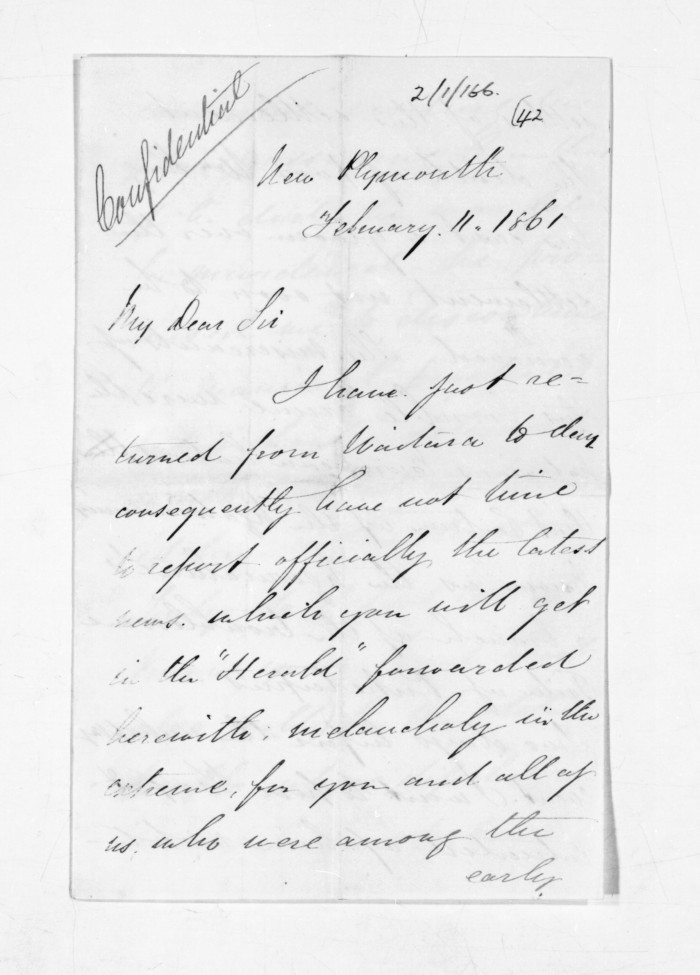 Confidential
2/1/166.
(42
New Plymouth
February. 11. 1861
My Dear Sir
I have just re=
turned from Waitara to day
consequently have not time
to report officially the latest
news. which you will get
in the "Herald" forwarded
herewith; melancholy in the
extreme, for you and all of
us, who were among the
early